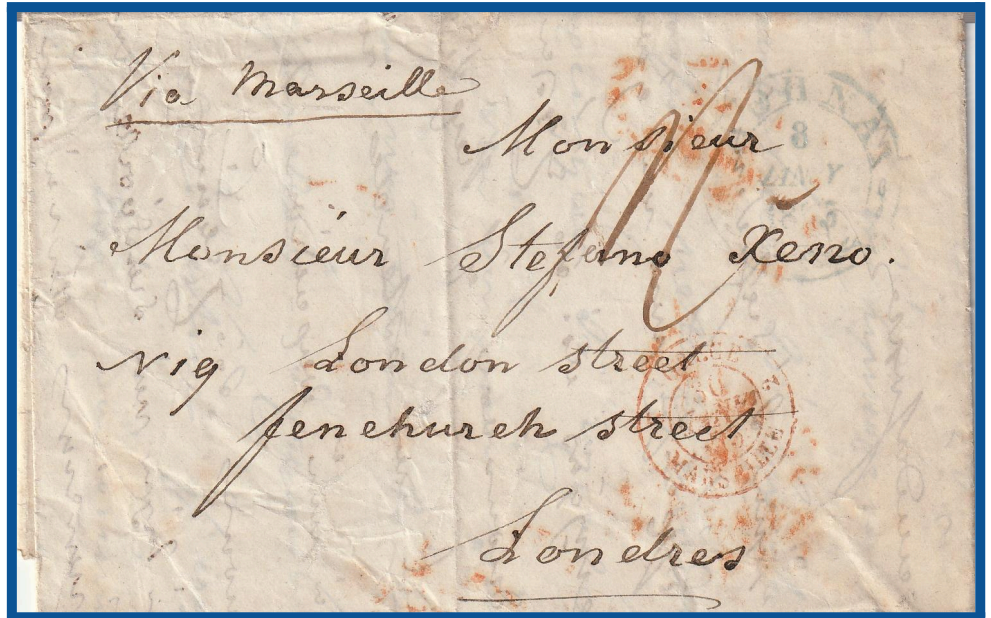 Via Marseille
Monsieur
Monsieur Stefano Xeno.
N 19 London street
fenchurch street
Londres
8
MARSEILLE